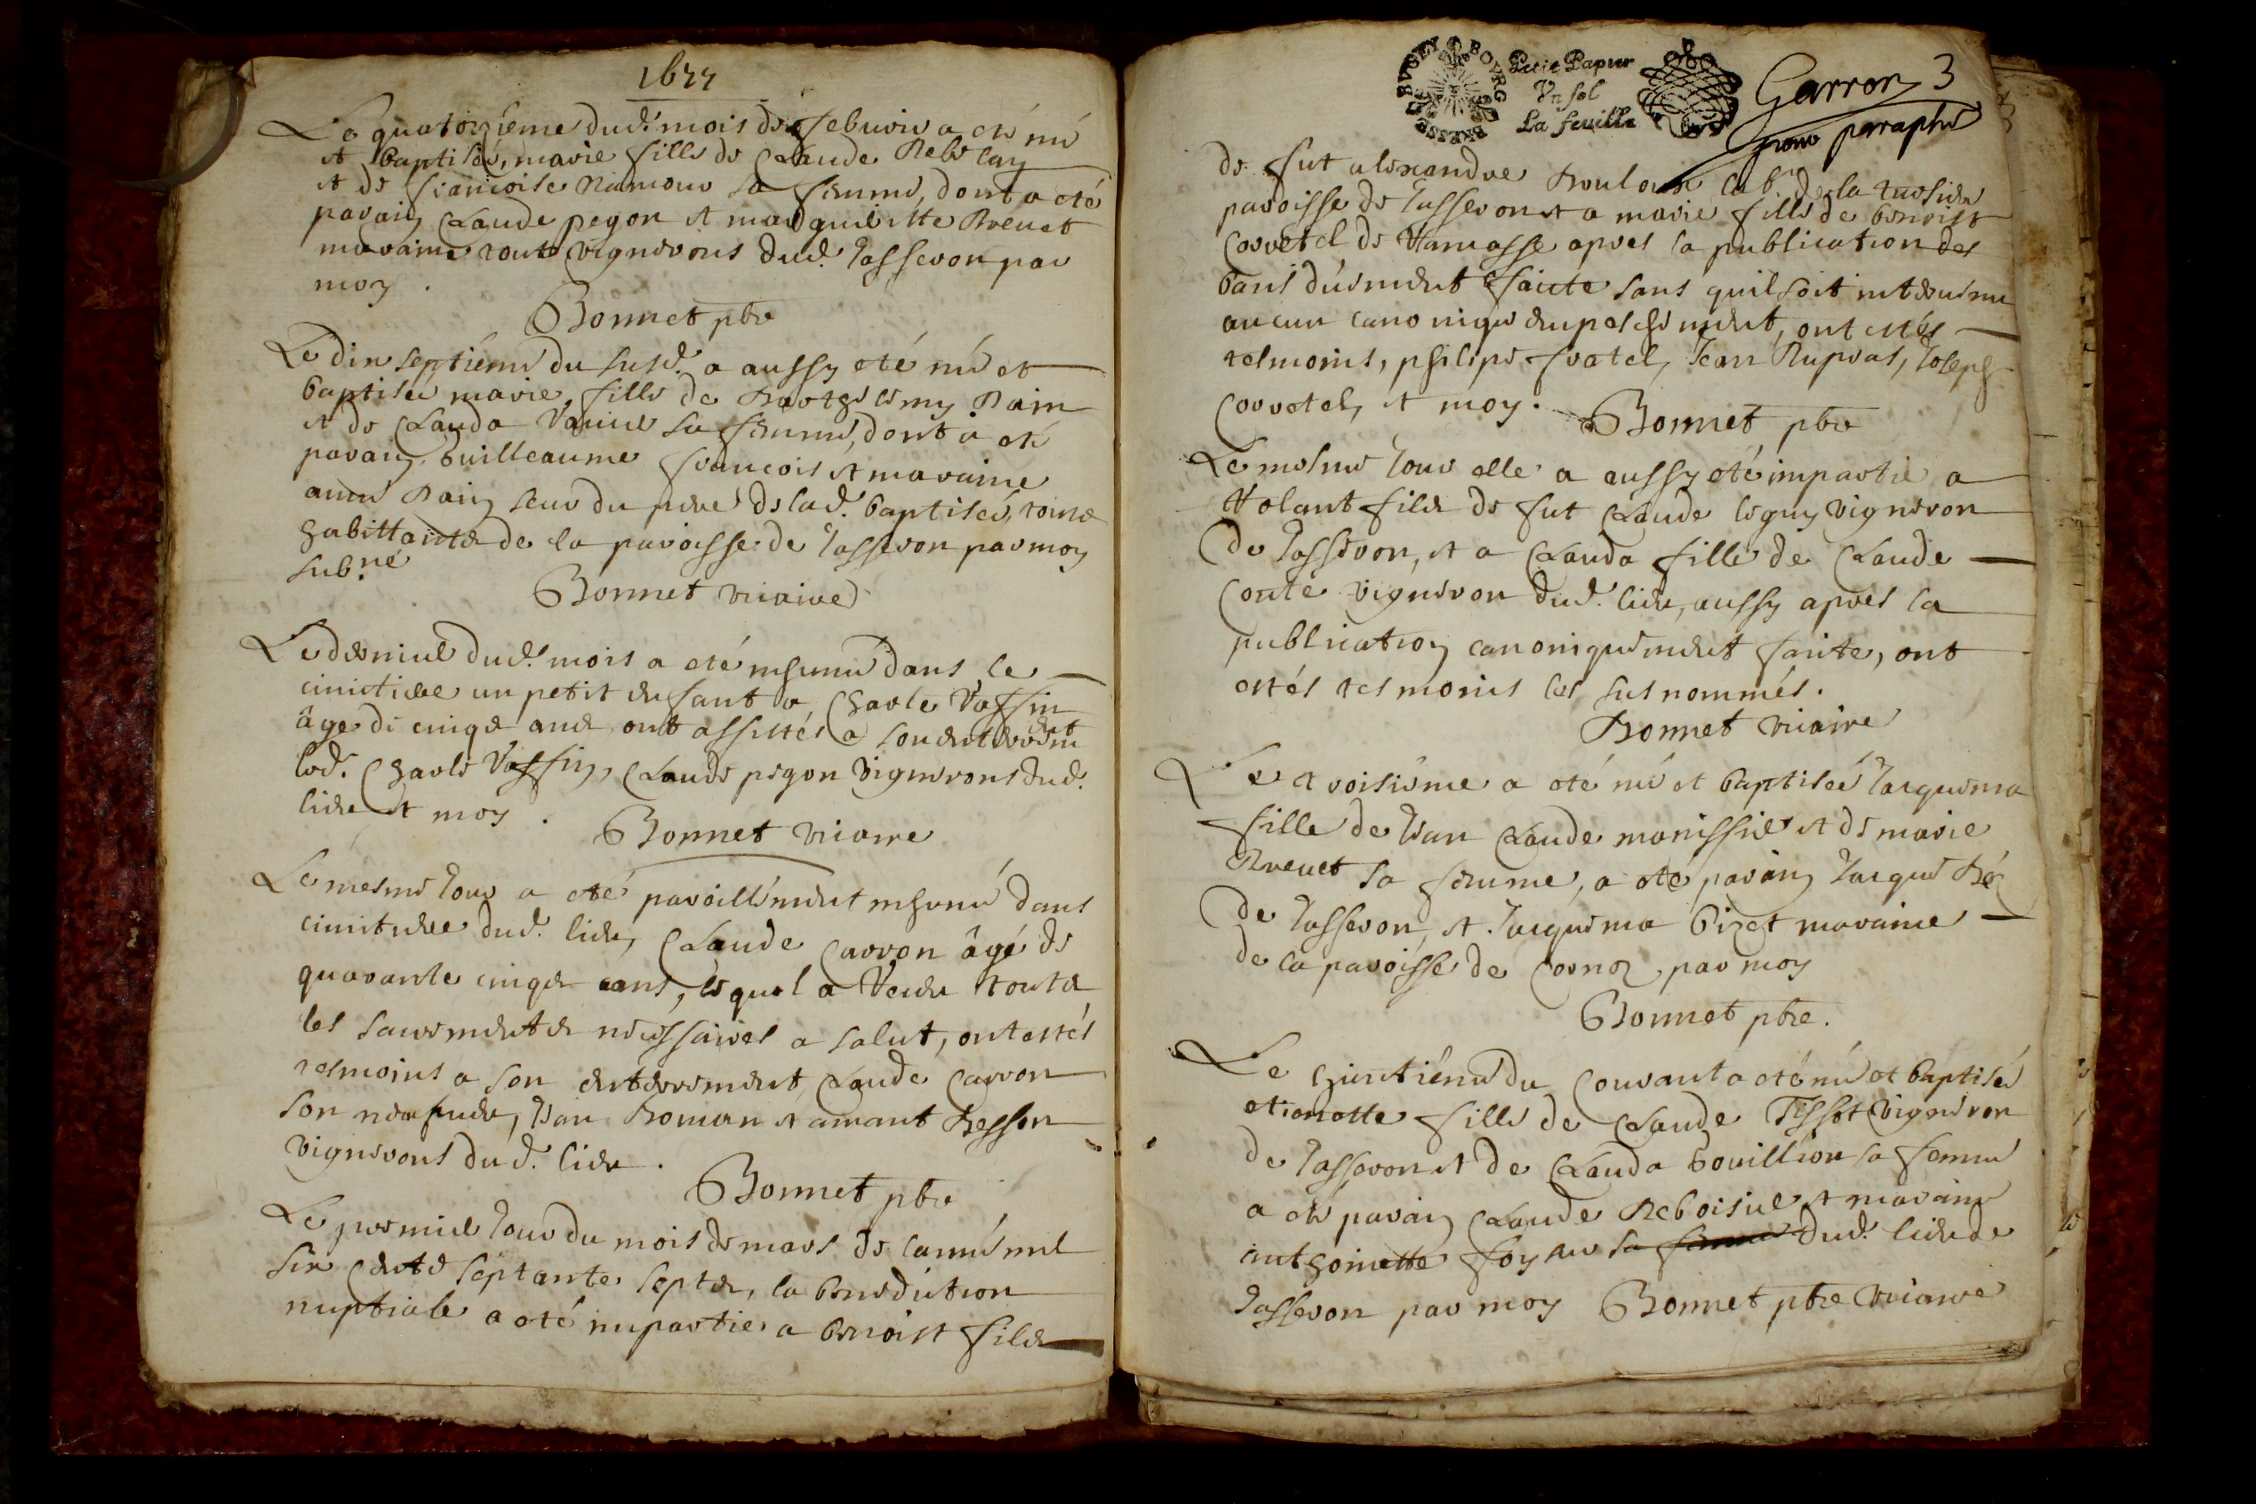 1677
Le quatorzieme dud. mois de febvrier a eté né
et baptiseé, marie fille de Claude Reboulay
et de francoise Ramour sa femme, dont a eté
parain Claude pegon et margueritte Brevet
maraine tout vignerons dud. Jasseron par
moy.
Bonnet pbre
Le dix septiéme du susd. a aussy eté né et
baptiseé marie, fille de Barthelemy Pain
et de Clauda Vanier sa femme, dont a eté
parain, Guilleaume francois et maraine
anne Pain seur du pere de lad. baptiseé, tous
habittants de la paroisse de Jasseron par moy
subné
Bonnet vicaire
Le dernier dud. mois a eté inhumé dans le
cimitiere un petit enfant a Charle Vassin
âgé de cinq ans ont assistés a son enterrement
led. Charle Vassin, Claude pegon vignerons dud.
lieu et moy.
Bonnet vicaire
Le mesme Jour a eté pareillement inhumé dans
cimitiere dud. lieu, Claude Carron âgé de
quarante cinq ans, lequel a receu touts
les sacrements necessaires a salut, ont estés
tesmoins a son enterrement, Claude Carron
son nepueu, Jean Roman et amant Besson
vignerons dud. lieu.
Bonnet pbre
Le premier Jour du mois de mars de lanneé mil
six cents septante sept, la benediction
nuptiale a eté impartie a benoist fils
BVGEY BOVRG BRESSE
Petit Papier
Un sol
La feuille
Garron 3
pour paraphe
de fut alexandre Roulour lab. de la
paroisse de Jasseron et a marie fille de benoist
Corretel de Ramasse apres la publication des
bans düement faicte sans quil soit intervenu
aucun canonique empeschement, ont estés
tesmoins, philipe fratel, Jean Rupras, Joseph
Corretel, et moy. Bonnet, pbre
Le mesme Jour elle a aussy eté impartie a
Volant fils de fut Claude leguy vigneron
de Jasseron, et a Clauda fille de Claude
Conte vigneron dud. lieu, aussy apres la
publication canoniquement faite, ont
estés tesmoins les susnommés.
Bonnet vicaire
Le troisiéme a eté né et baptiseé Jaquema
fille de Jean Claude monissier et de marie
Brevet sa femme, a eté parain Jaque Ré
de Jasseron, et Jaquema bizet maraine
de la paroisse de Cornoz par moy
Bonnet pbre.
Le huictiéme du Courant a eté né et baptiseé
etienette fille de Claude Tissot vigneron
de Jasseron et de Clauda bouillion sa femme
a eté parain Claude Reboisier et maraine
anthoinette sa femme dud. lieu de
Jasseron par moy Bonnet pbre vicaire